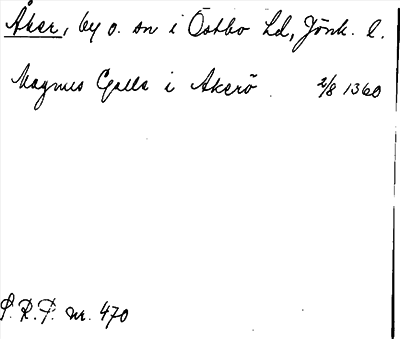 Åker, by o. sn i Östbo hd, Jönk. l.
Magnus Gialle i Akerö. 2/8 1360
S. R. P. nr. 470